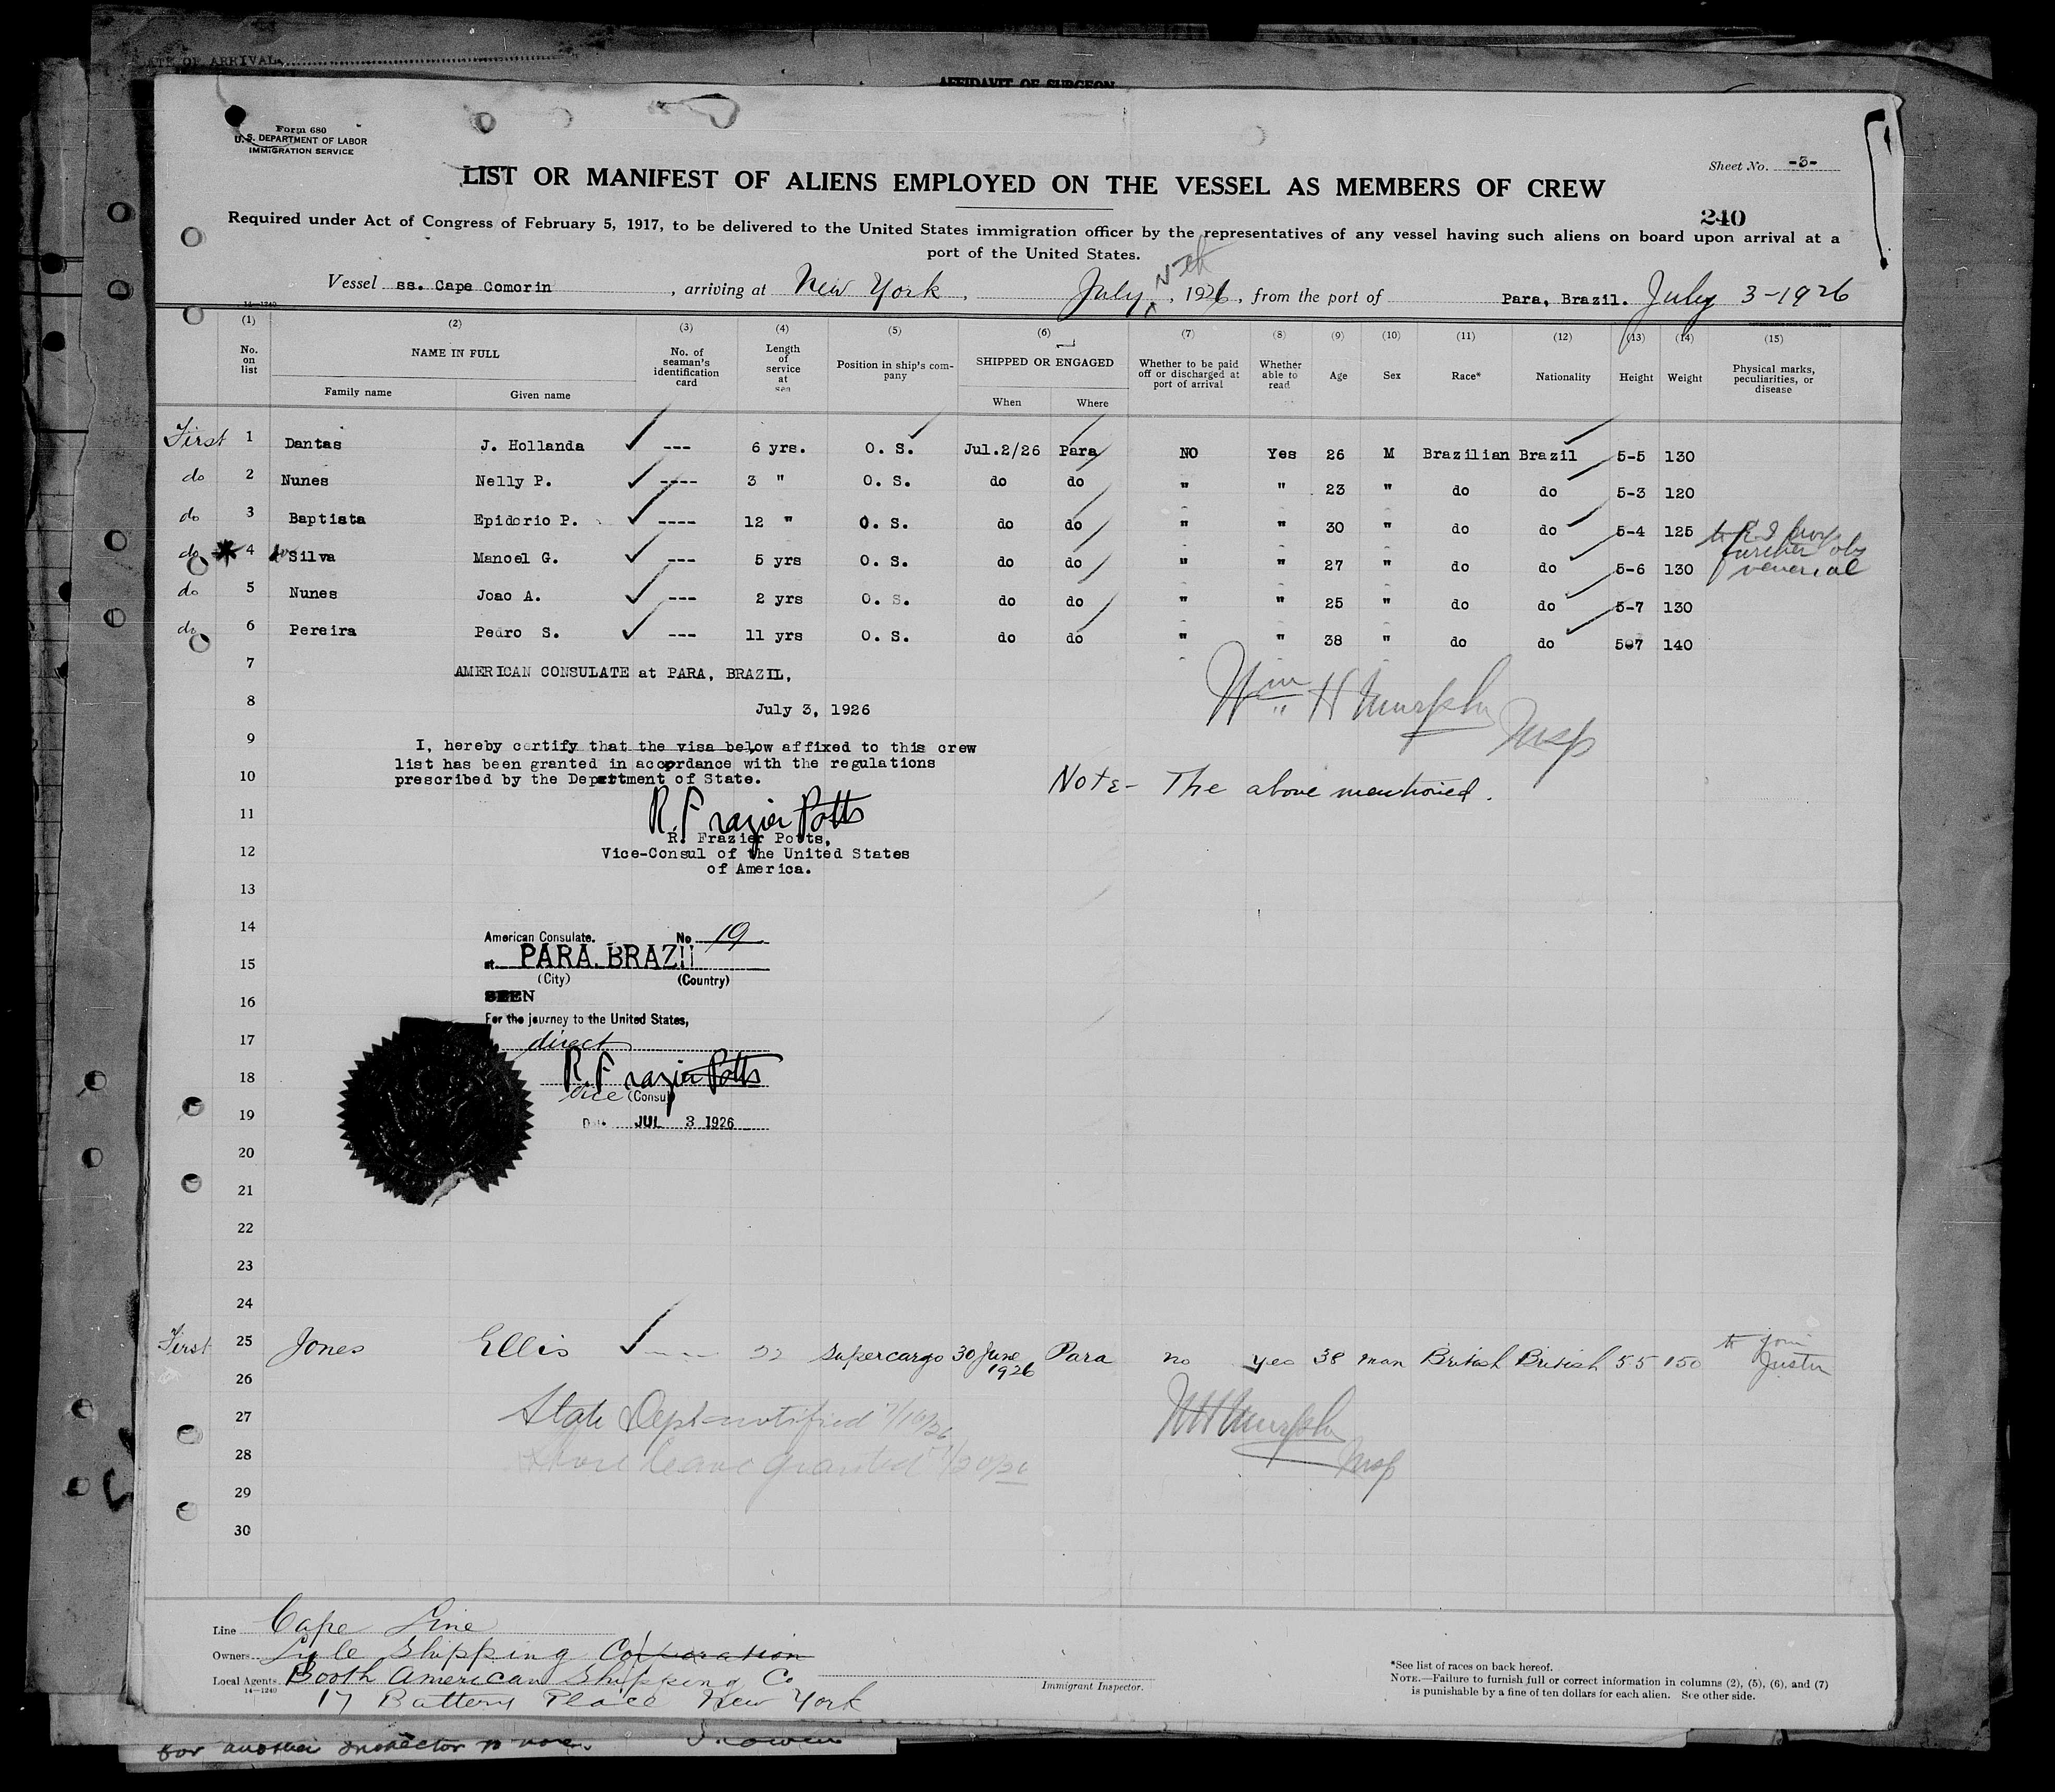 DATE OF ARRIVAL
AFFIDAVIT OF SURGEON
Form 680
U. S. DEPARTMENT OF LABOR
IMMIGRATION SERVICE
Sheet No. -3-
LIST OR MANIFEST OF ALIENS EMPLOYED ON THE VESSEL AS MEMBERS OF CREW
240
Required under Act of Congress of February 5, 1917, to be delivered to the United States immigration officer by the representatives of any vessel having such aliens on board upon arrival at a
port of the United States.
Vessel ss. Cape Comorin, arriving at New York, July, 1926, from the port of Para, Brazil. July 3-1926
14-1240
(1) (2) (3) (4) (5) (6) (7) (8) (9) (10) (11) (12) (13) (14) (15)
No. on list NAME IN FULL No. of seaman's identification card Length of service at sea Position in ship's company SHIPPED OR ENGAGED Whether to be paid off or discharged at port of arrival Whether able to read Age Sex Race* Nationality Height Weight Physical marks, peculiarities, or disease
Family name Given name When Where
First 1 Dantas J. Hollanda --- 6 yrs. O. S. Jul.2/26 Para NO Yes 26 M Brazilian Brazil 5-5 130
do 2 Nunes Nelly P. ---- 3 " O. S. do do " " 23 " do do 5-3 120
do 3 Baptista Epidorio P. ---- 12 " O. S. do do " " 30 " do do 5-4 125
do * 4 Silva Manoel G. --- 5 yrs O. S. do do " " 27 " do do 5-6 130 further obs venereal
do 5 Nunes Joao A. --- 2 yrs O. S. do do " " 25 " do do 5-7 130
do 6 Pereira Pedro S. --- 11 yrs O. S. do do " " 38 " do do 507 140
7 AMERICAN CONSULATE at PARA, BRAZIL,
Wm H Murphy Insp
8 July 3, 1926
9 I, hereby certify that the visa below affixed to this crew
list has been granted in accordance with the regulations
10 prescribed by the Department of State.
Note- The above mentioned.
11 R. Frazier Potts
R. Frazier Potts,
12 Vice-Consul of the United States
of America.
13
14 American Consulate. No 19
15 at PARA. BRAZIL
(City) (Country)
16 SEEN
For the journey to the United States,
17 direct
18 R. Frazier Potts
Vice (Consul)
19 Date JUL 3 1926
20
21
22
23
24
First 25 Jones Ellis ---- 22 Supercargo 30 June 1926 Para no yes 38 man British British 5 5 150 to join
26
27 State Dept notified 7/16/26 WH Murphy Insp
28 Shore leave granted 7/20/26
29
30
Line Cape Line
Owners Lyle Shipping Corporation
Local Agents Booth American Shipping Co
14-1240
17 Battery Place New York
Immigrant Inspector.
*See list of races on back hereof.
NOTE.—Failure to furnish full or correct information in columns (2), (5), (6), and (7)
is punishable by a fine of ten dollars for each alien. See other side.
for another Inspector